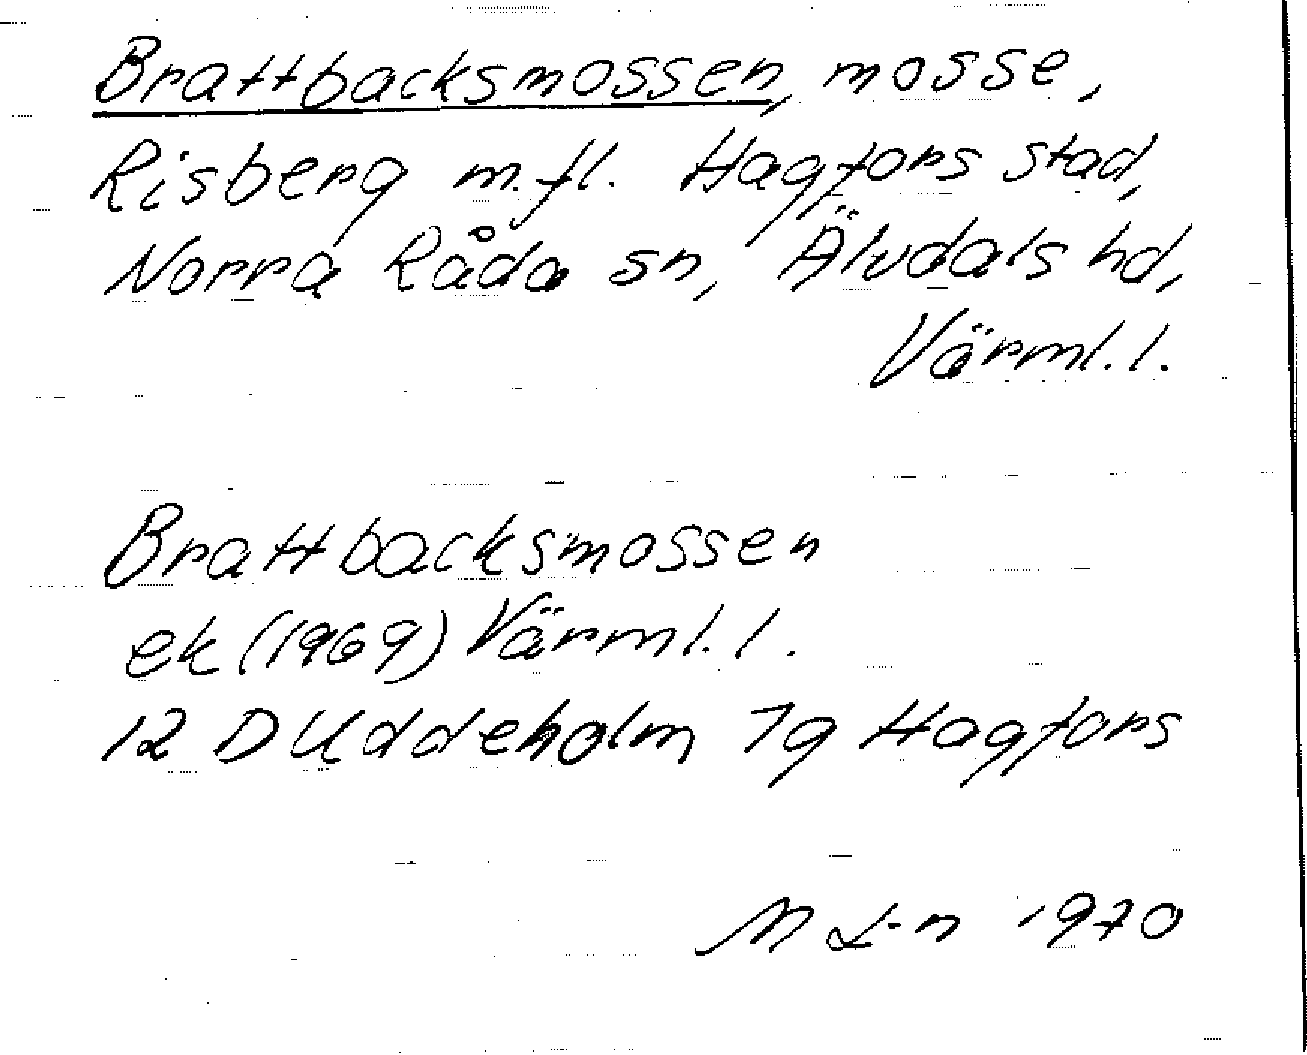 Brattbacksmossen, mosse,
Risberg m.fl. Hagfors stad,
Norra Råda sn, Älvdals hd,
Värml. l.
Brattbacksmossen
ek (1969) Värml. l.
12 D Uddeholm 7g Hagfors
M L-n 1970